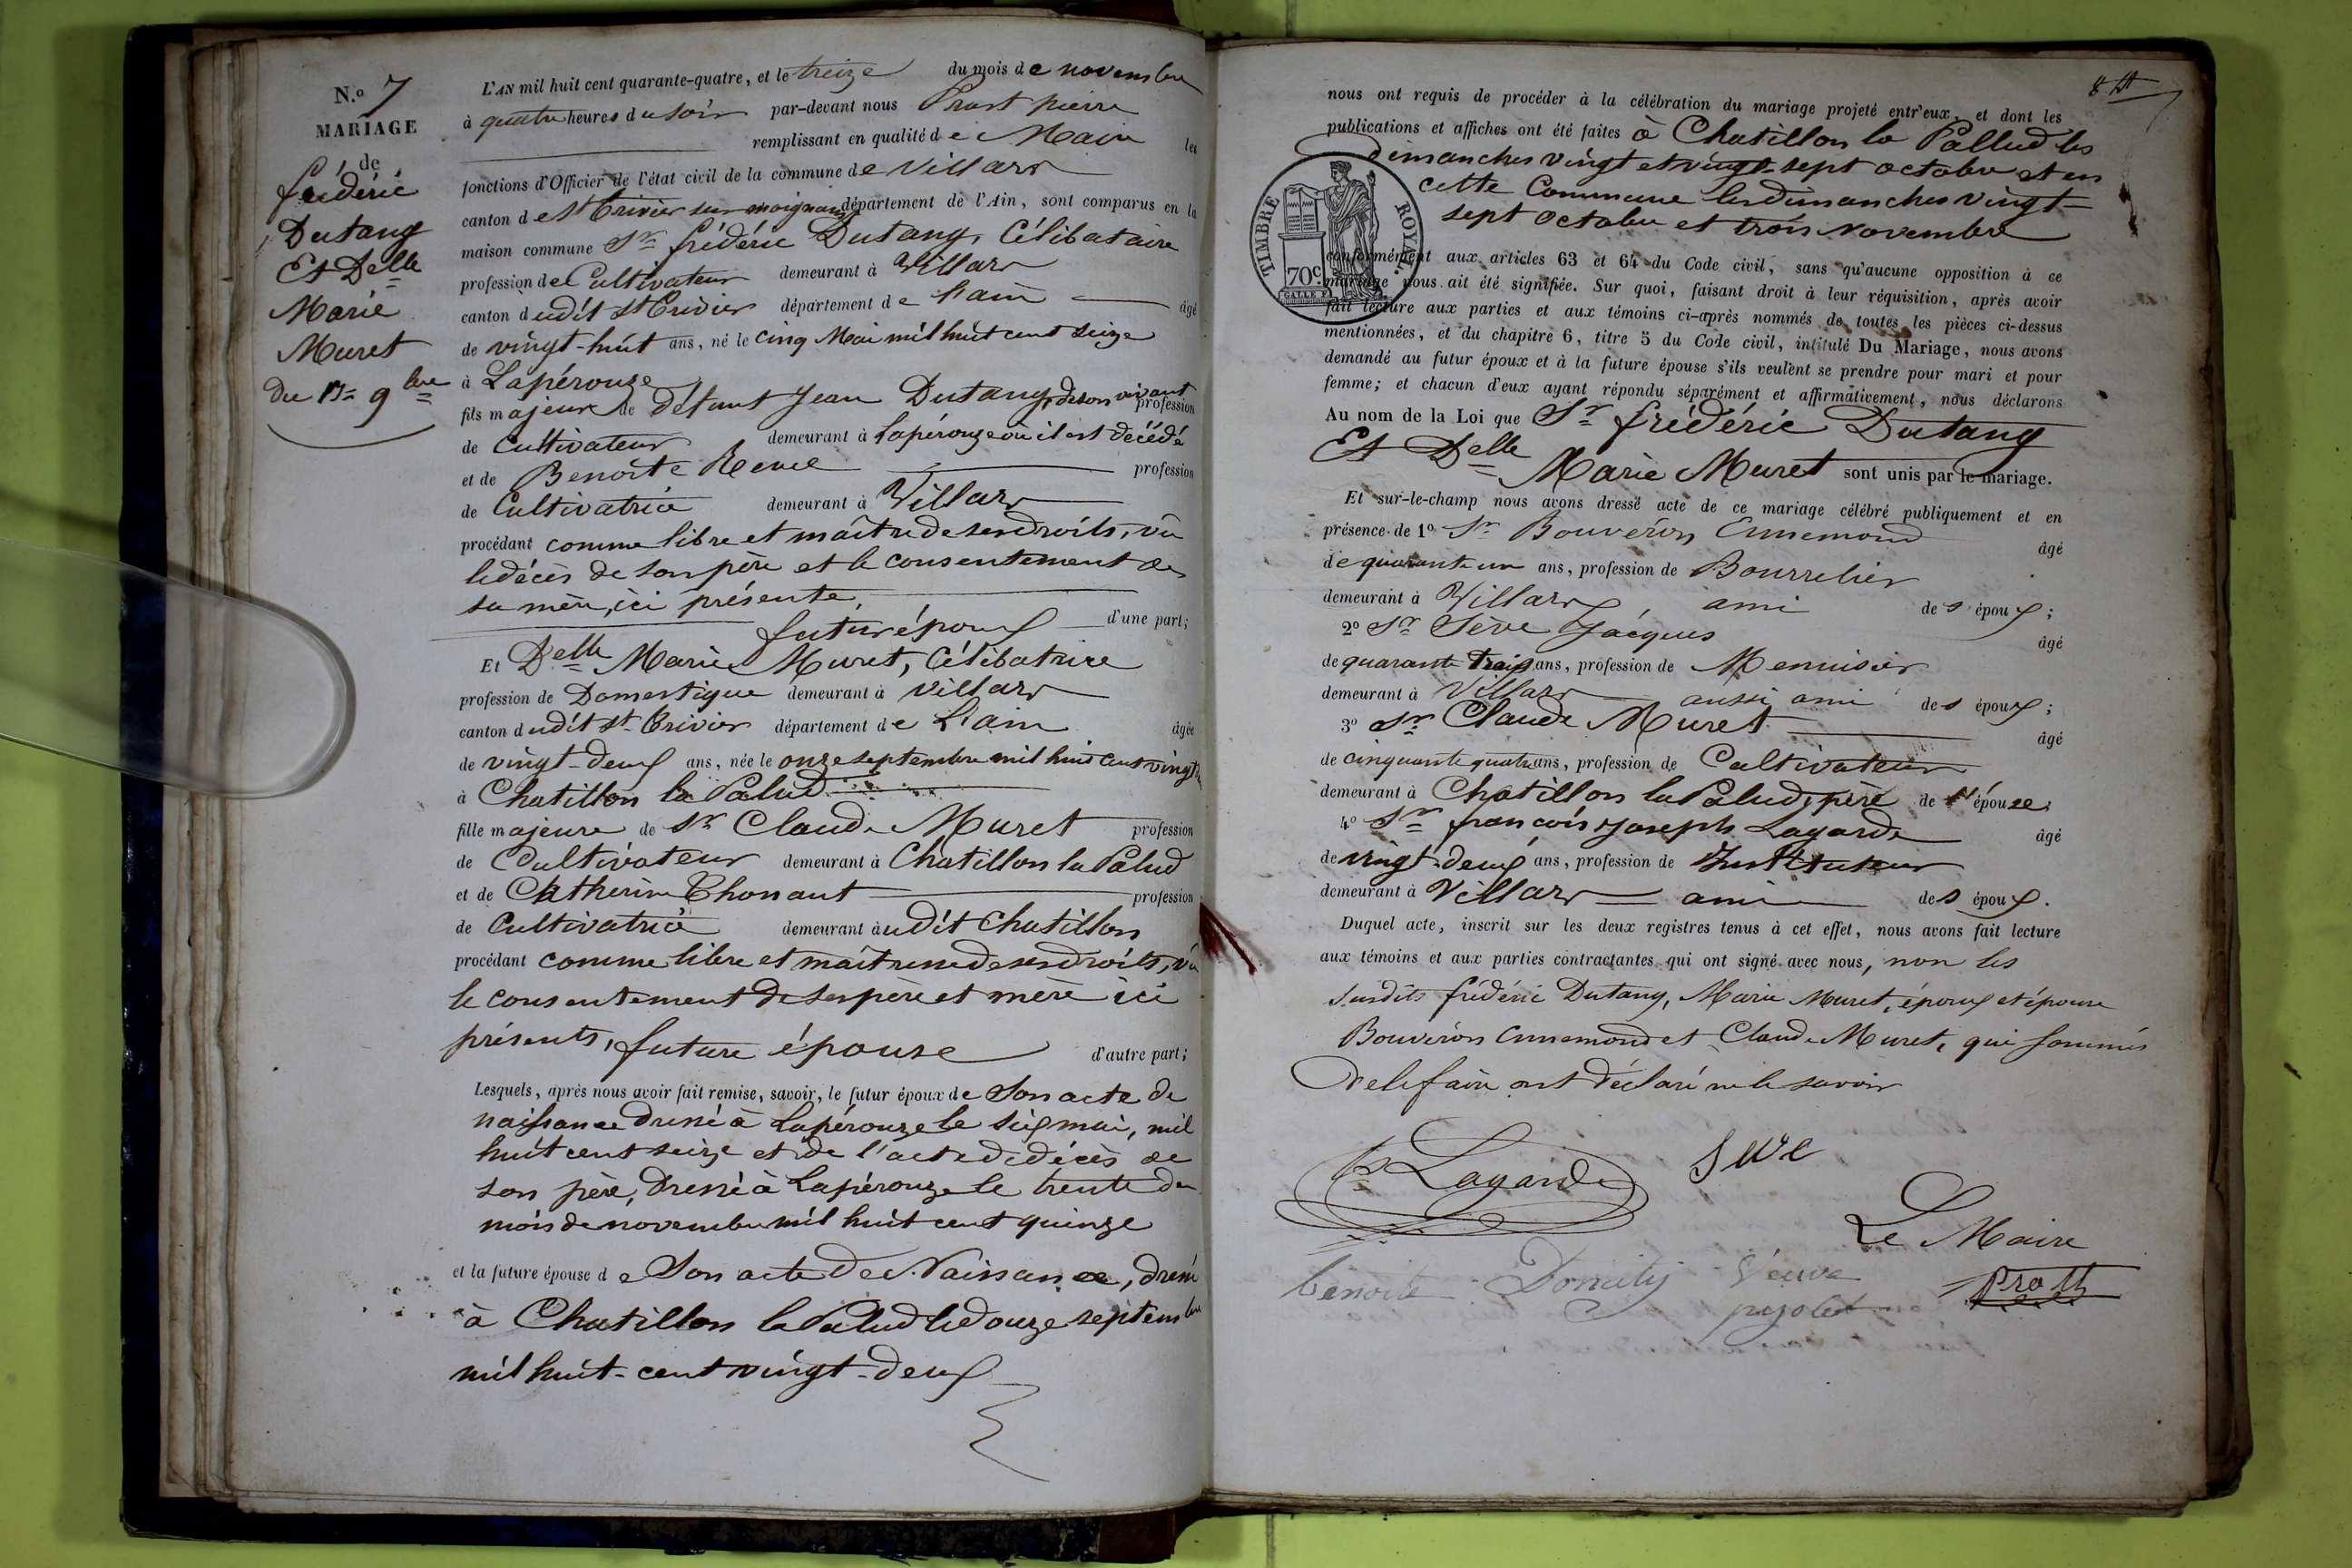 N.o 7
MARIAGE
de
frédéric
Dutang
Et Delle
Marie
Muret
Du 13 9bre
L'AN mil huit cent quarante-quatre, et le treize du mois de novembre
à quatre heures du soir par-devant nous Prost pierre
remplissant en qualité de Maire les
fonctions d'Officier de l'état civil de la commune de Villars
canton de St Trivier sur moignans département de l'Ain, sont comparus en la
maison commune Sr frédéric Dutang, Célibataire
profession de Cultivateur demeurant à Villars
canton dudit St Trivier département de l'ain âgé
de vingt-huit ans, né le cinq Mai mil huit cent seize
à Lapérouze
fils majeur de défunt Jean Dutang, de son vivant profession
de Cultivateur demeurant à Lapérouze où il est décédé
et de Benoite profession
de Cultivatrice demeurant à Villars
procédant comme libre et maître de ses droits, vu
le décès de son père et le consentement de
sa mère, ici présente,
futur époux d'une part;
Et Delle Marie Muret, Célibatrice
profession de Domestique demeurant à Villars
canton dudit St Trivier département de L'ain âgée
de vingt-deux ans, née le onze septembre mil huit cent vingt
à Chatillon la Palud
fille majeure de Sr Claude Muret profession
de Cultivateur demeurant à Chatillon la Palud
et de Catherine Thonaut profession
de Cultivatrice demeurant àudit Chatillon
procédant comme libre et maîtresse de ses droits, vu
le consentement de ses père et mère ici
présents, future épouse d'autre part;
Lesquels, après nous avoir fait remise, savoir, le futur époux de Son acte de
naissance dressé à Lapérouze le six mai, mil
huit cent seize et de l'acte de décès de
son père, dressé à Lapérouze le trente du
mois de novembre mil huit cent quinze
et la future épouse de Son acte de Naissance, dressé
à Chatillon la Palud le douze septembre
mil huit-cent vingt-deux
8
nous ont requis de procéder à la célébration du mariage projeté entr'eux, et dont les
publications et affiches ont été faites à Chatillon la Pallud les
dimanches vingt et vingt-sept octobre et en
cette Commune les dimanches vingt-
sept octobre et trois novembre
TIMBRE ROYAL.
70c.
conformément aux articles 63 et 64 du Code civil, sans qu'aucune opposition à ce
mariage nous ait été signifiée. Sur quoi, faisant droit à leur réquisition, après avoir
fait lecture aux parties et aux témoins ci-après nommés de toutes les pièces ci-dessus
mentionnées, et du chapitre 6, titre 5 du Code civil, intitulé Du Mariage, nous avons
demandé au futur époux et à la future épouse s'ils veulent se prendre pour mari et pour
femme; et chacun d'eux ayant répondu séparément et affirmativement, nous déclarons
Au nom de la Loi que Sr frédéric Dutang
Et Delle Marie Muret sont unis par le mariage.
Et sur-le-champ nous avons dressé acte de ce mariage célébré publiquement et en
présence de 1o Sr Bouveron Ennemond âgé
de quarante un ans, profession de Bourrelier
demeurant à Villars, ami des époux;
2o Sr Sève Jacques âgé
de quarante trois ans, profession de Menuisier
demeurant à Villars aussi ami des époux;
3o Sr Claude Muret âgé
de cinquante quatre ans, profession de Cultivateur
demeurant à Chatillon la Palud, père de l'épouse;
4o Sr francois joseph Lagarde âgé
de vingt-deux ans, profession de Instituteur
demeurant à Villars ami des époux.
Duquel acte, inscrit sur les deux registres tenus à cet effet, nous avons fait lecture
aux témoins et aux parties contractantes qui ont signé avec nous, non les
susdits frédéric Dutang, Marie Muret, époux et épouse
Bouveron Ennemond et Claude Muret, qui sommés
de le faire ont déclaré ne le savoir
Lagarde
Seve
Le Maire
benoite Veuve
Prost